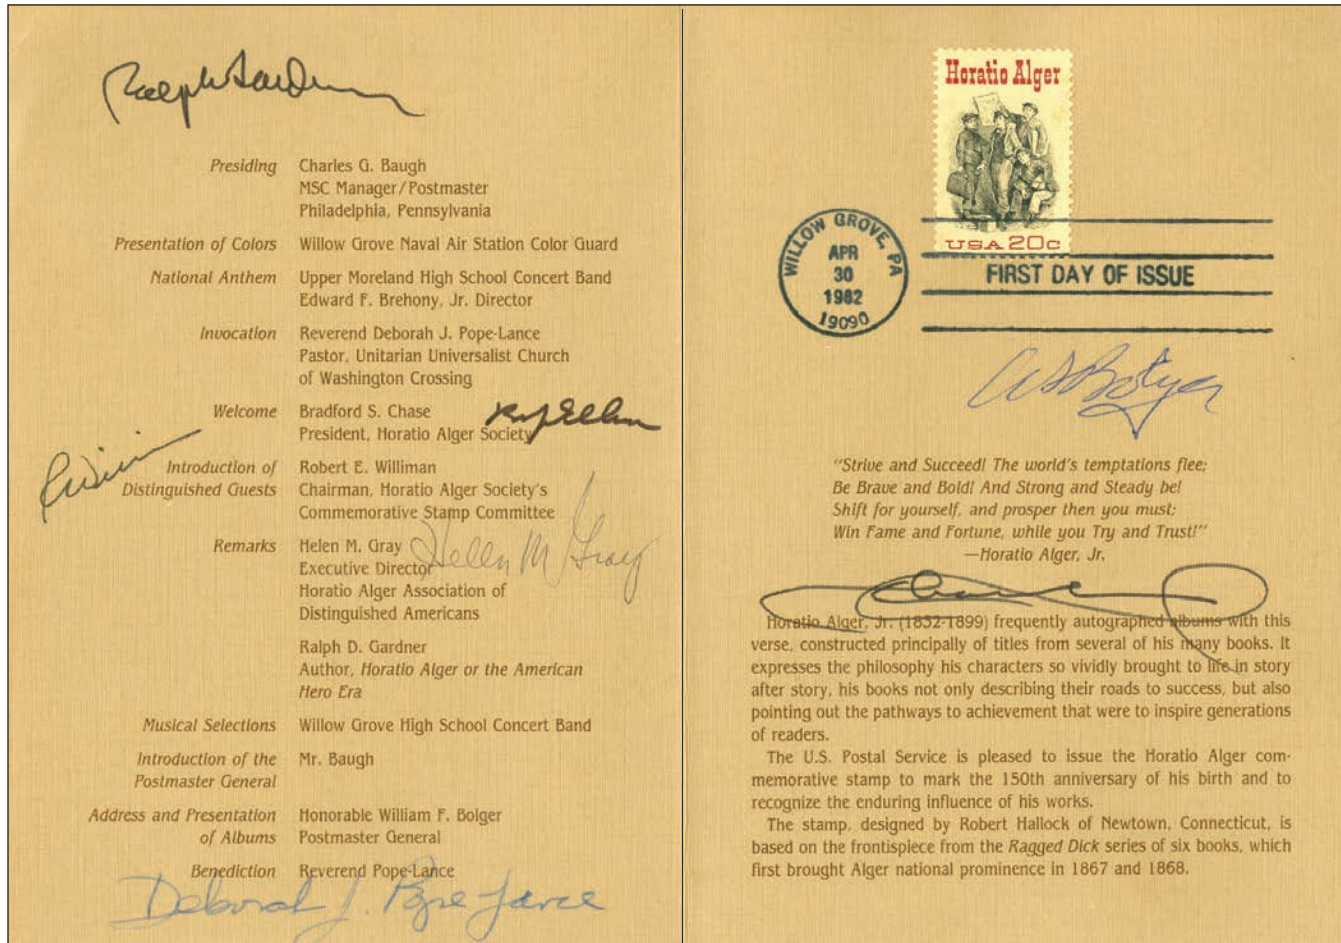 Ralph Gardner
Presiding Charles G. Baugh
MSC Manager/Postmaster
Philadelphia, Pennsylvania
Presentation of Colors Willow Grove Naval Air Station Color Guard
National Anthem Upper Moreland High School Concert Band
Edward F. Brehony, Jr. Director
Invocation Reverend Deborah J. Pope-Lance
Pastor, Unitarian Universalist Church
of Washington Crossing
Welcome Bradford S. Chase
President, Horatio Alger Society
Introduction of Robert E. Williman
Distinguished Guests Chairman, Horatio Alger Society's
Commemorative Stamp Committee
Remarks Helen M. Gray
Helen M Gray
Executive Director
Horatio Alger Association of
Distinguished Americans
Ralph D. Gardner
Author, Horatio Alger or the American
Hero Era
Musical Selections Willow Grove High School Concert Band
Introduction of the Mr. Baugh
Postmaster General
Address and Presentation Honorable William F. Bolger
of Albums Postmaster General
Benediction Reverend Pope-Lance
Deborah J. Pope-Lance
Horatio Alger
USA 20c
WILLOW GROVE, PA
APR
30
1982
19090
FIRST DAY OF ISSUE
"Strive and Succeed! The world's temptations flee;
Be Brave and Bold! And Strong and Steady be!
Shift for yourself, and prosper then you must;
Win Fame and Fortune, while you Try and Trust!"
—Horatio Alger, Jr.
Horatio Alger, Jr. (1832-1899) frequently autographed albums with this
verse, constructed principally of titles from several of his many books. It
expresses the philosophy his characters so vividly brought to life in story
after story, his books not only describing their roads to success, but also
pointing out the pathways to achievement that were to inspire generations
of readers.
The U.S. Postal Service is pleased to issue the Horatio Alger com-
memorative stamp to mark the 150th anniversary of his birth and to
recognize the enduring influence of his works.
The stamp, designed by Robert Hallock of Newtown, Connecticut, is
based on the frontispiece from the Ragged Dick series of six books, which
first brought Alger national prominence in 1867 and 1868.